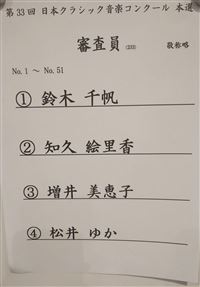 第33回 日本クラシック音楽コンクール 本選
審査員 敬称略
No.1 ～ No.51
① 鈴木 千帆
② 知久 絵里香
③ 増井 美恵子
④ 松井 ゆか